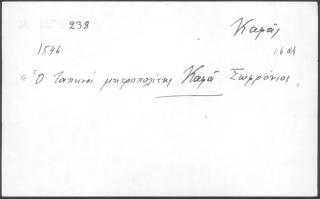 238 Καμᾶς
1546 16 αἰ
"Ὁ ταπεινὸς μητροπολίτης Καμᾶ Σωφρόνιος"